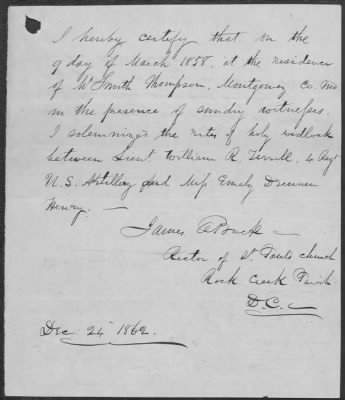 I hereby certify that on the
9 day of March 1858, at the residence
of Mr Smith Thompson, Montgomery Co. Md
in the presence of sundry witnesses.
I solemnized the rites of holy wedlock
between Lieut William R. Terrill, 4 Regt
U.S. Artillery and Miss Emily Drennen
Henry. —
James A Buck —
Rector of St. Paul's church
Rock Creek Parish
D.C.
Dec. 24th 1862.